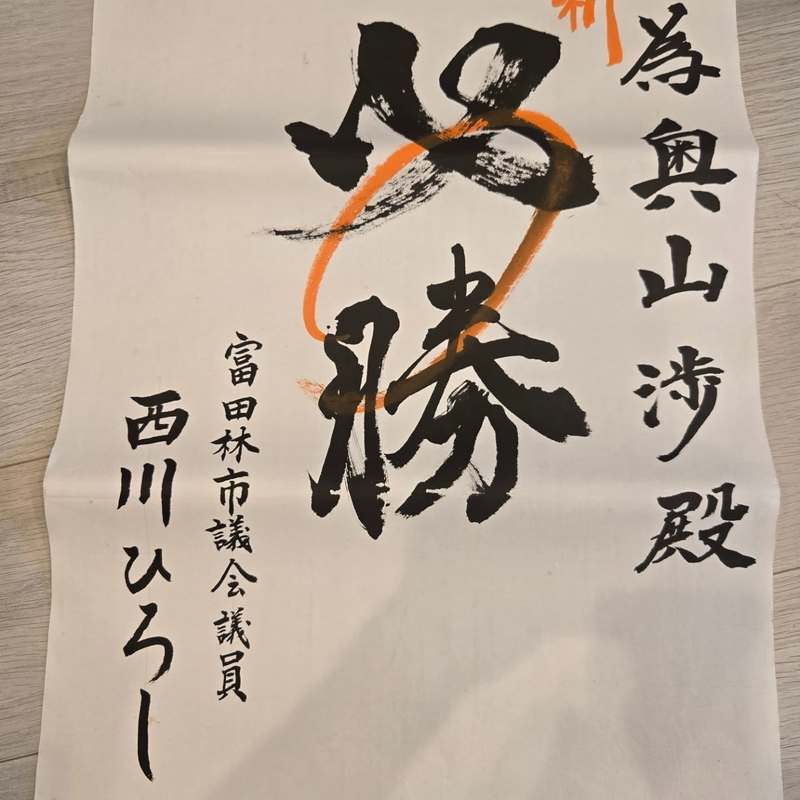 為奥山渉殿
祈
必勝
富田林市議会議員
西川ひろし